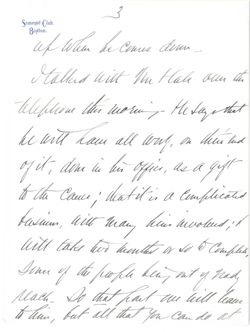 3
Somerset Club,
Boston.
up when he comes down.
I talked with Mr Hale over the
telephone this morning. He says that
he will have all work, on this end
of it, done in his office, as a gift
to the Cause; that it is a complicated
business, with many him involved; it
will take two months or so to complete,
some of the people being out of easy
reach. So that part one will leave
to him, but all that you can do at